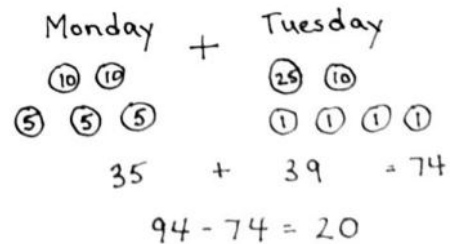 Monday + Tuesday
10 10 25 10
5 5 5 1 1 1 1
35 + 39 = 74
94 - 74 = 20